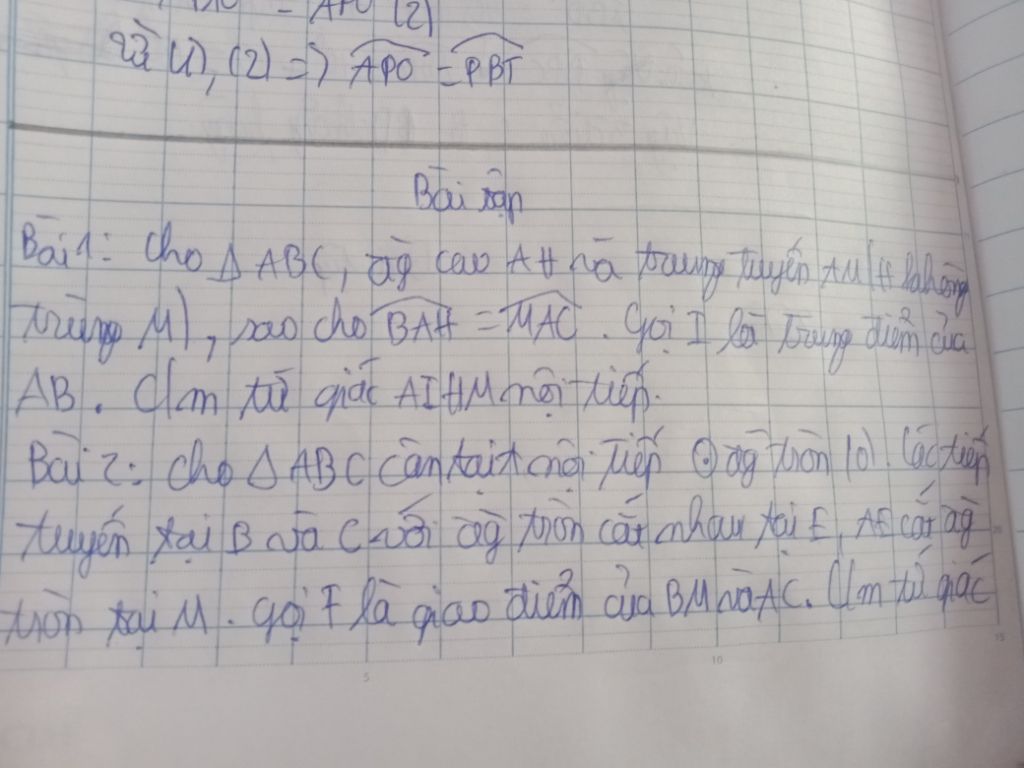 = APO (2)
từ (1), (2) => APO = PBT
Bài tập
Bài 1: Cho Δ ABC, đg cao AH và trung tuyến AM (H không
trùng M), sao cho BAH = MAC. Gọi I là trung điểm của
AB. C/m tứ giác AIHM nội tiếp.
Bài 2: Cho Δ ABC cân tại A nội tiếp đg tròn (O). Các tiếp
tuyến tại B và C với đg tròn cắt nhau tại E, AE cắt đg
tròn tại M. Gọi F là giao điểm của BM và AC. C/m tứ giác
5
10
15